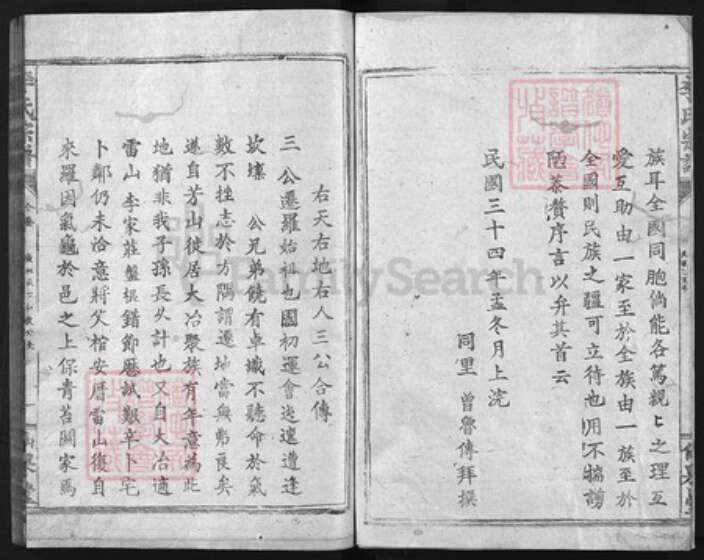 族耳全國同胞倘能各篤親亡之理互
愛互助由一家至於全族由一族至於
全國則民族之疆可立待也用不揣謭
陋恭贊序言以弁其首云
民國三十四年孟冬月上浣
同里 曾魯傳拜撰
右天右地右人三公合傳
三 公遷羅始祖也國初運會迍邅遭逢
坎壈 公兄弟饒有卓識不聽命於氣
數不挫志於方隅謂遷地當無弗良矣
遂自芳山徙居大冶聚族有年意為此
地猶非我子孫長久計也又自大冶適
雷山李家莊盤根錯節歷試艱辛卜宅
卜鄰仍未洽意將父棺安厝雷山復自
來羅因氣龜於邑之上保青苔闗家焉
李氏宗譜
FamilySearch